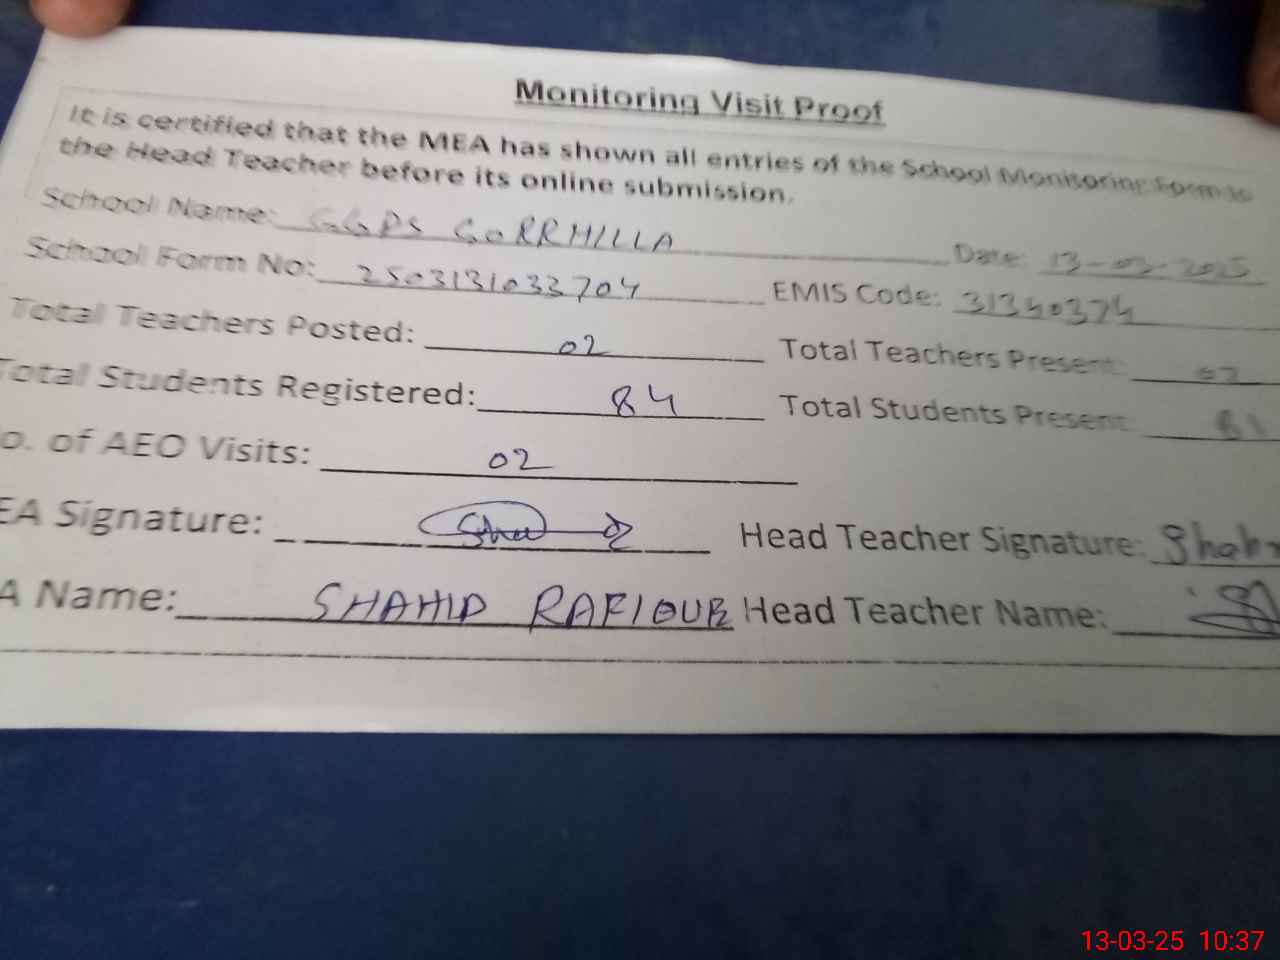 Monitoring Visit Proof
It is certified that the MEA has shown all entries of the School Monitoring Form to
the Head Teacher before its online submission.
School Name: GGPS GORRHILLA Date: 13-03-2025
School Form No: 2503131033704 EMIS Code: 31340374
Total Teachers Posted: 02 Total Teachers Present: 02
Total Students Registered: 84 Total Students Present: 81
o. of AEO Visits: 02
EA Signature: Head Teacher Signature:
A Name: SHAHID RAFIQUE Head Teacher Name:
13-03-25 10:37